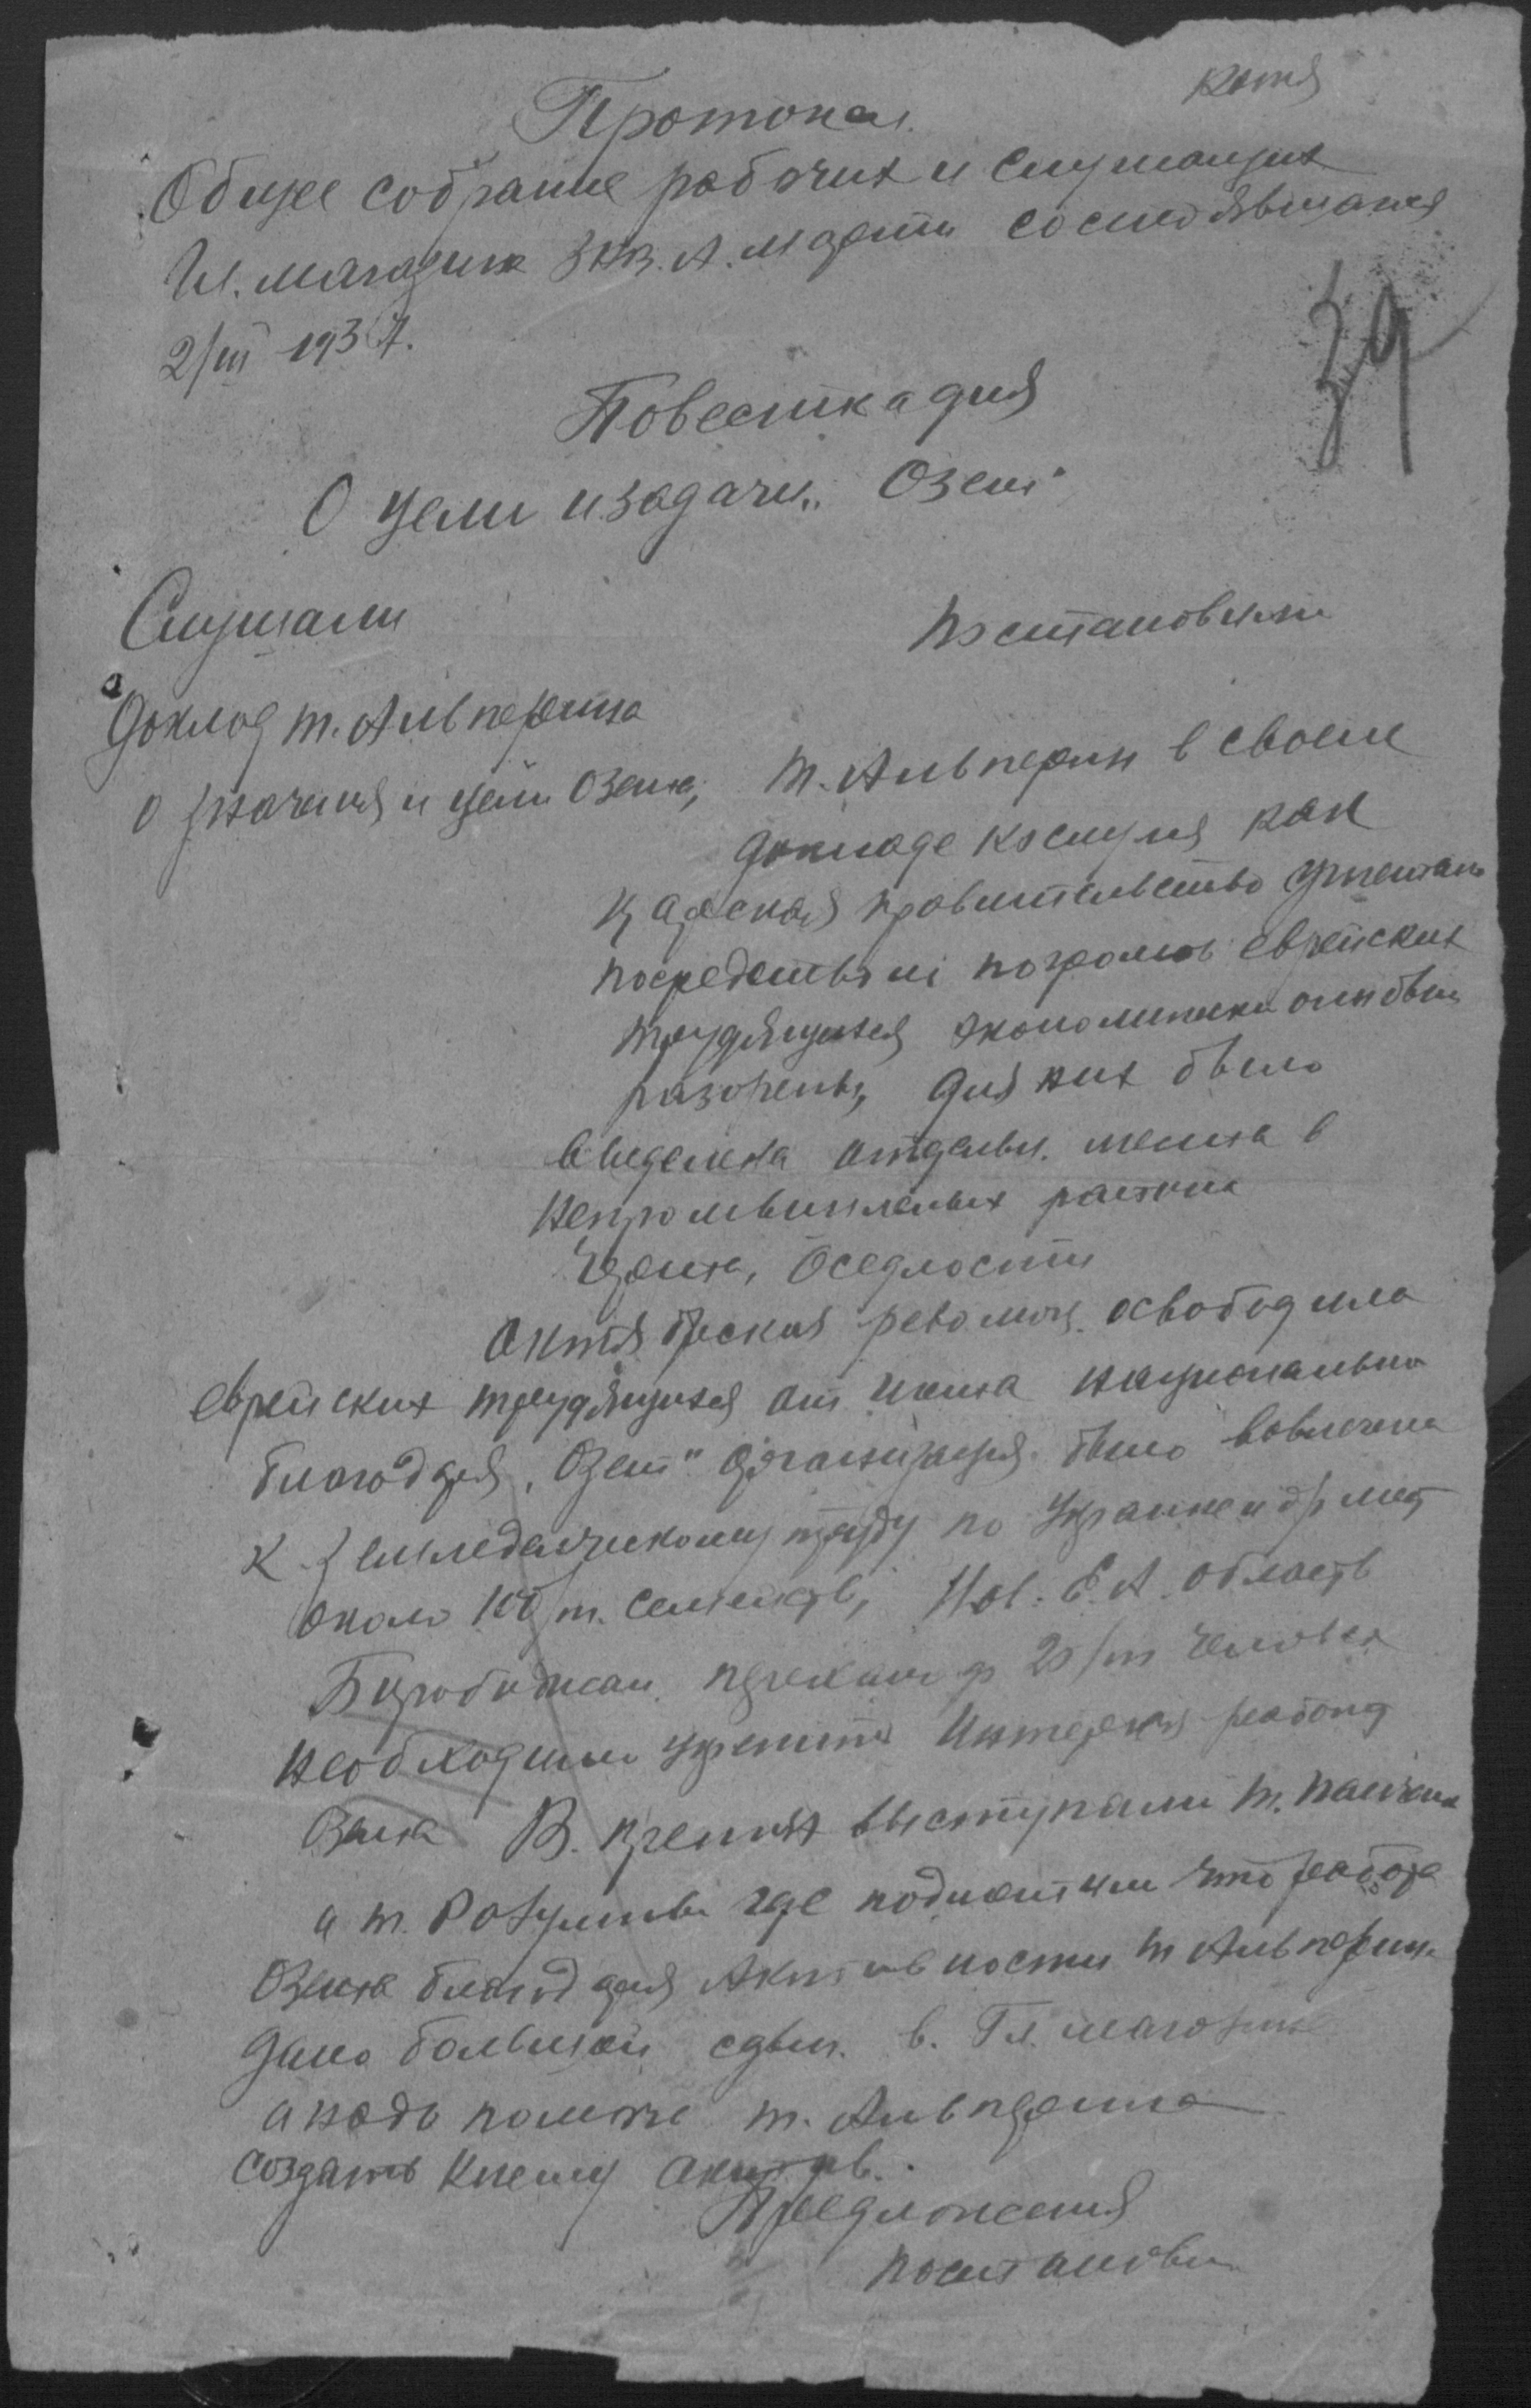 Копия
Протокол
Общее собрание рабочих и служащих
магазина состоявшаяся
2/III 1937.
39
Повестка дня
О цели и задачи Озет
Слушали
Постановили
Доклад т. Альперина
о значения и цели Озета,
т. Альперин в своем
докладе коснулся как
царская правительство
посредством погромов еврейских
трудящихся экономически они были
разорены, для них было
выделена отдельн. места в
непромышленых
Черта, Оседлости
Октябрская революц. освободила
еврейских трудящихся от национально
благодаря „Озет" организация было вовлечена
к земледельческому труду по Украине и др мест
около 100/т. семейств, Е. А. область
Биробиджан до 20/т человек
необходимо укрепить работу
Озета В. прениях выступали т.
и т. где подметили что работа
Озета благодаря Активности т Альперина
дало большой сдвиг. в. Гл. магазине
а надо помоч т. Альперина
создать к нему актив.
Предложения